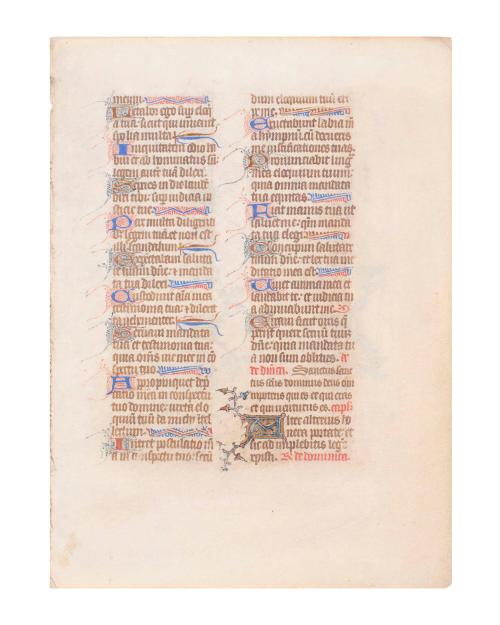 meum.
Letabor ego sup eloq̄
a tua: sicut qui invenit
spolia multa.
Iniquitatem odio ha
bui et abhominatus sū
legem autē tuā dilexi.
Septies in die laudē
dixi tibi: sup iudicia iu
sticie tue.
Pax multa diligenti
bꝰ legem tuā: et non est
illis scandalum.
Expectabam saluta
re tuum dn̄e: et manda
ta tua dilexi.
Custodivit aīa mea
testimonia tua: et dilexit
ea vehementer.
Servavi mandata
tua et testimonia tua:
quia om̄s vie mee in cō
spectu tuo.
Appropinquet dep̄
catio mea in conspectu
tuo domine: iuxta elo
quiū tuū da michi ītel
lectum.
Intret postulatio m̄
a in cōspectu tuo: secū
dum eloquium tuū eri
pe me.
Eructabunt labia m̄
a hympnū: cū docueris
me iustificationes tuas.
Pronunciabit lingua
mea eloquium tuum:
quia omnia mandata
tua equitas.
Fiat manus tua ut
salvet me: qm̄ manda
ta tua elegi.
Concupivi salutare
tuum dn̄e: et lex tua me
ditatio mea est.
Vivet anima mea et
laudabit te: et iudicia tu
a adiuvabunt me.
Erravi sicut ovis q̄
periit: quere servū tuū
dn̄e: quia mandata tu
a non sum oblitus. a͞
de dn̄ica. Sanctus sanc
tus sctūs dominus deus om
nipotens qui es et qui eras
et qui venturus es. capl̄
Alter alterius ho
nera portate: et
sic adimplebitis leḡ
xp̄isti. R. de dominica.